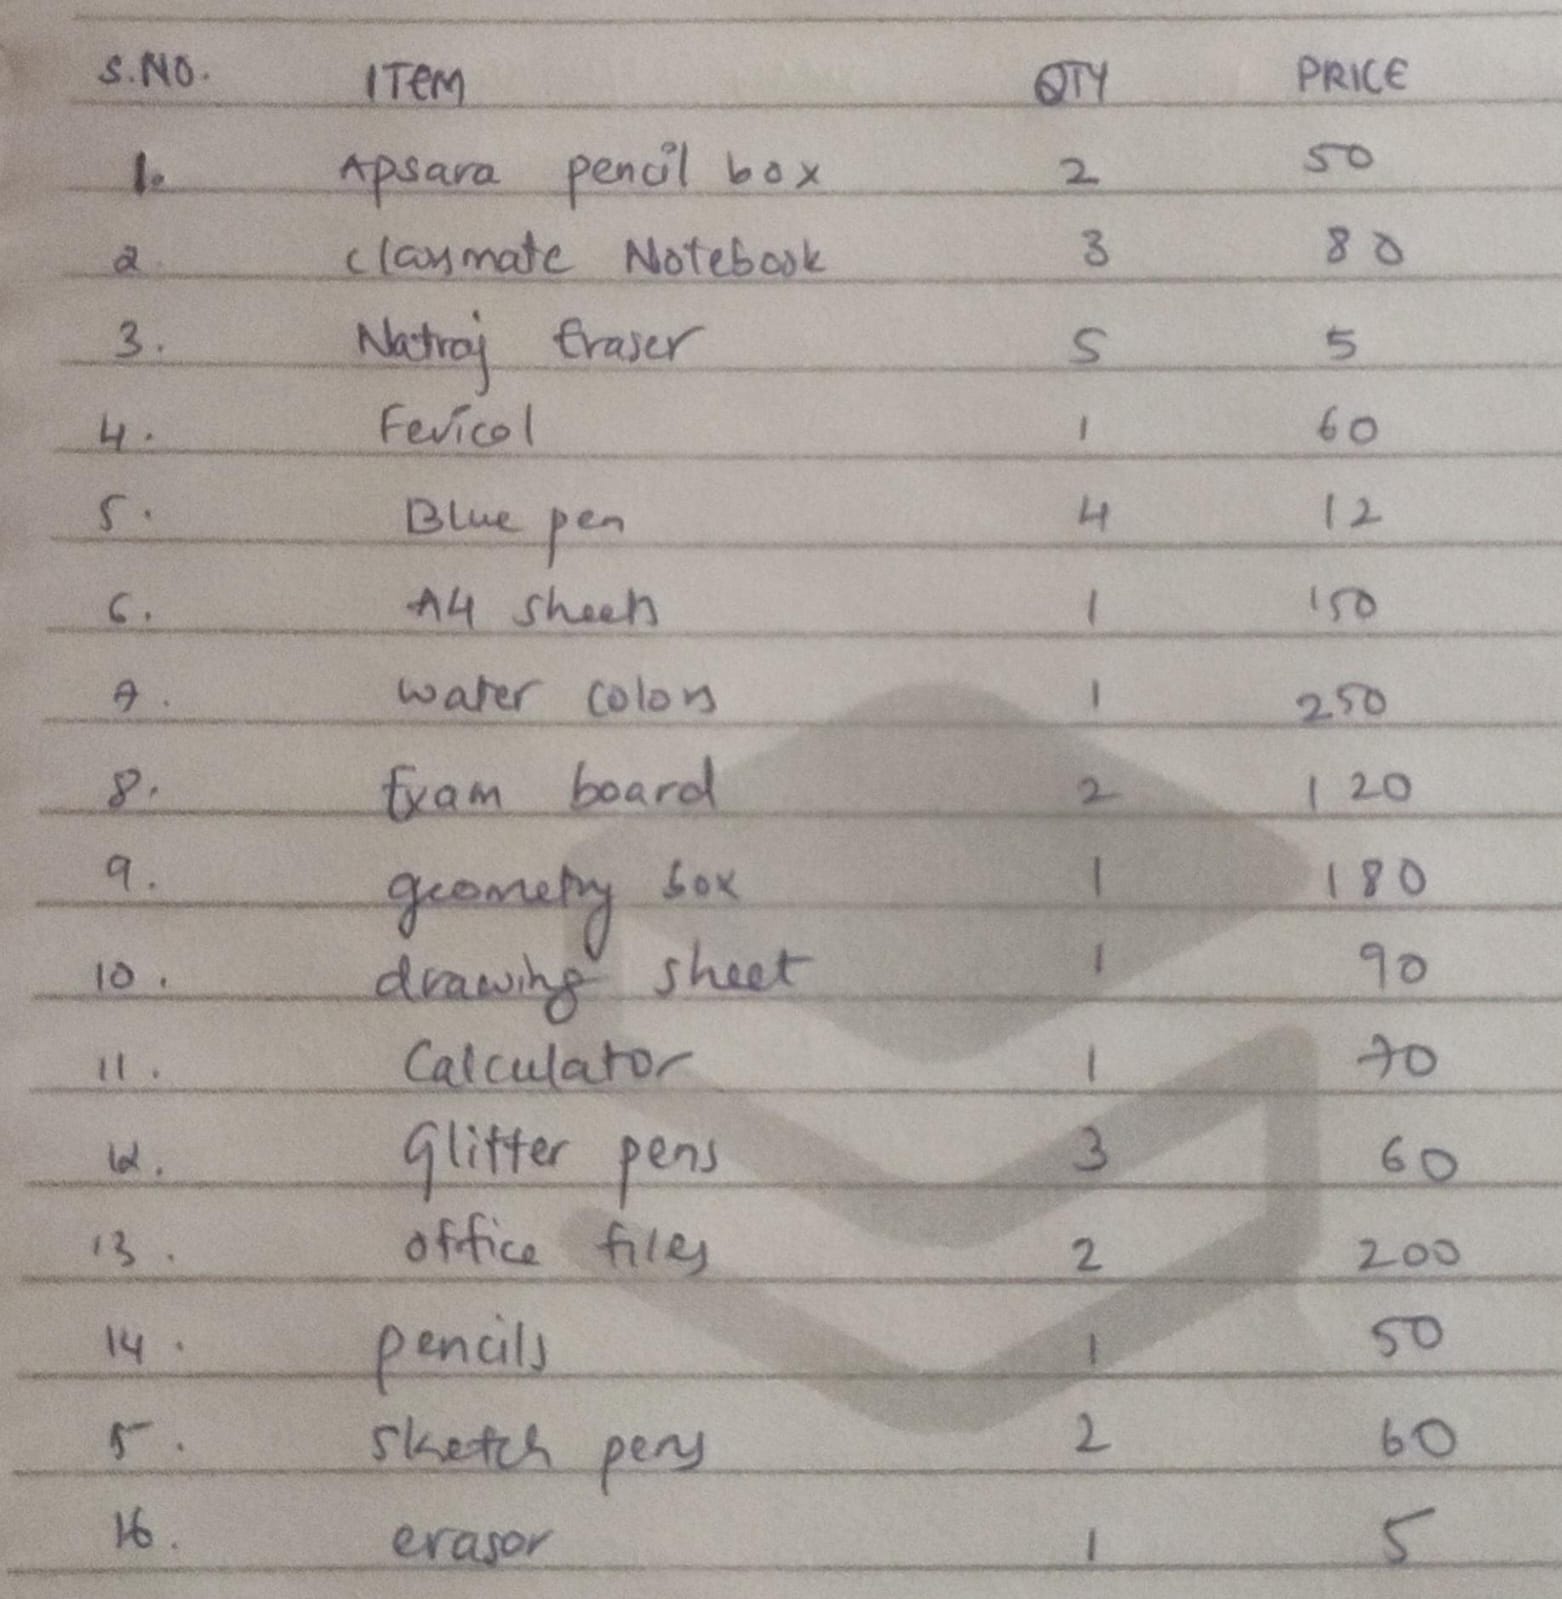 S.NO. ITEM QTY PRICE
1. Apsara pencil box 2 50
2. classmate Notebook 3 80
3. Natraj Eraser 5 5
4. Fevicol 1 60
5. Blue pen 4 12
6. A4 sheets 1 150
7. water colors 1 250
8. Exam board 2 120
9. geometry box 1 180
10. drawing sheet 1 90
11. Calculator 1 70
12. Glitter pens 3 60
13. office files 2 200
14. pencils 1 50
5. sketch pens 2 60
16. erasor 1 5